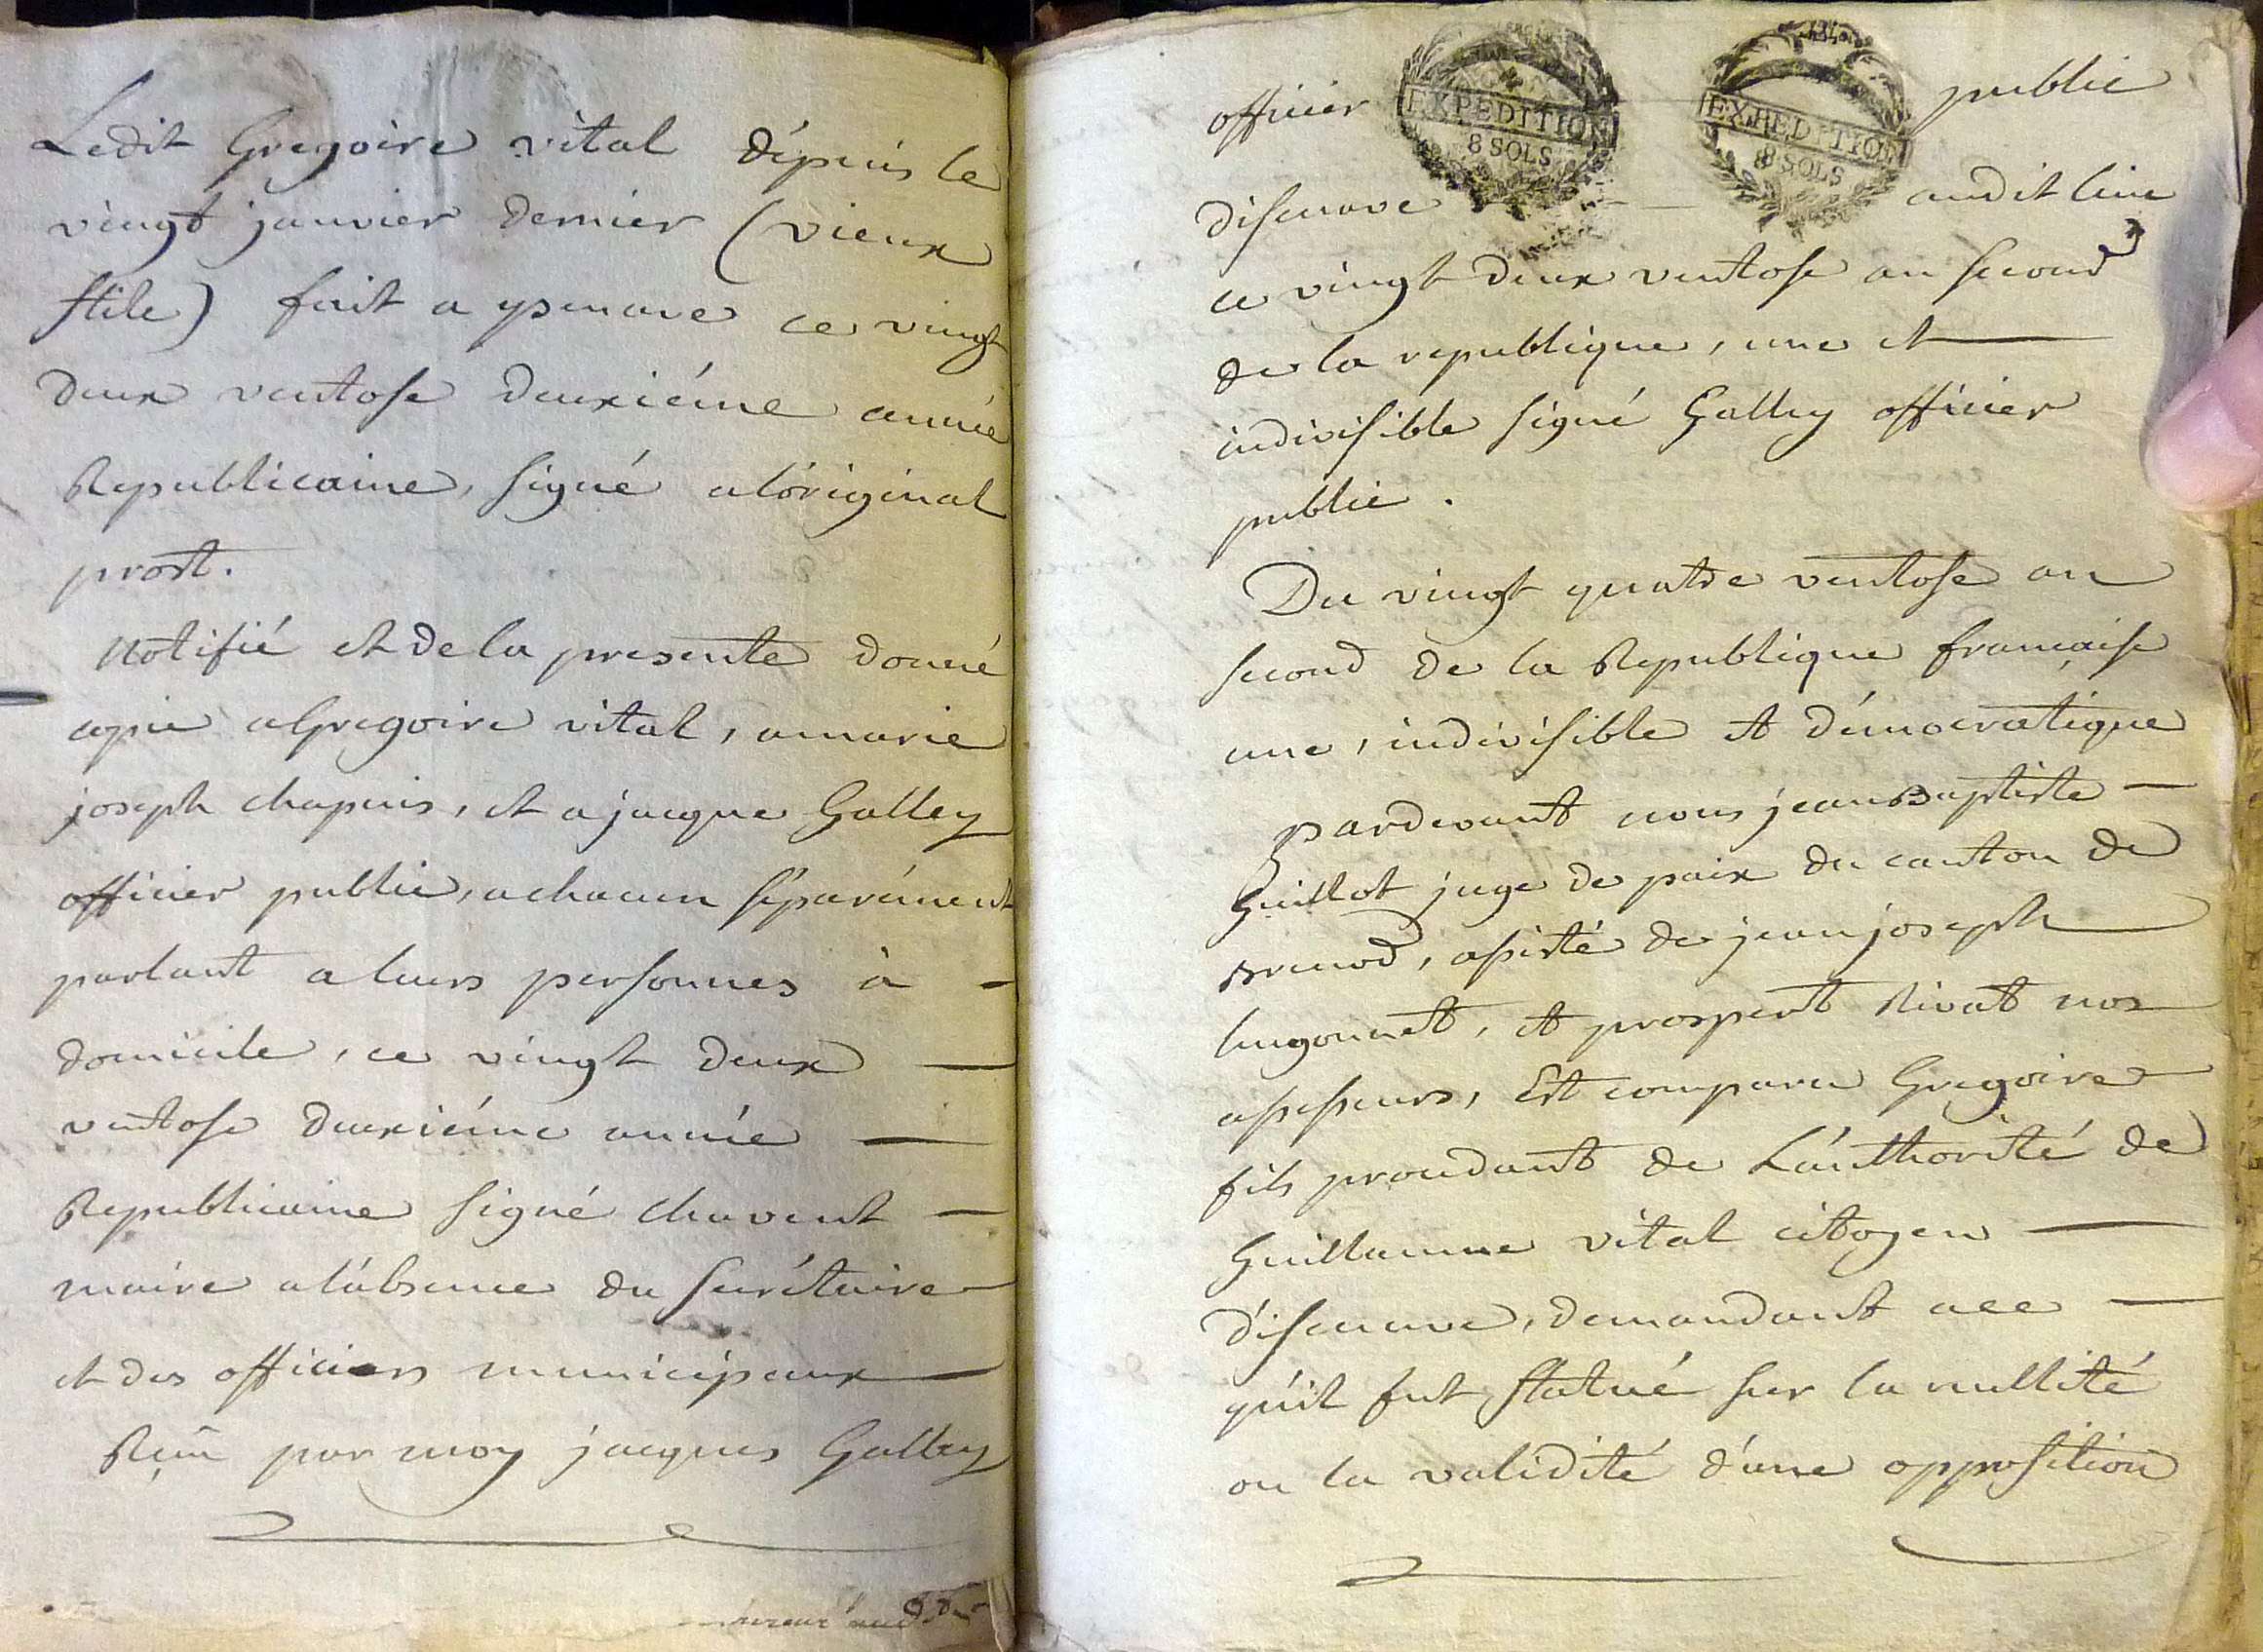 Ledit Gregoire vital dépuis le
vingt janvier dernier (vieux
stile) fait a ysenave ce vingt
deux ventose deuxiéme année
Republicaine, signé a l'original
prost.
Notifié et de la presente donné
copie a Gregoire vital, a marie
joseph chapuis, et a jacque Galley
officier public, a chacun séparément
parlant a leurs personnes à -
domicile, ce vingt deux —
ventose deuxiéme année —
Republicaine signé chavent —
maire a l'absence du secrétaire
et des officiers municipaux —
Reçu par moy jacques Galley
officier public
EXPEDITION
8 SOLS
EXPEDITION
8 SOLS
disenave audit lieu
ce vingt deux ventose an second
de la republique, une et —
indivisible signé Galley officier
public.
Du vingt quatre ventose an
second de la Republique française
une, indivisible et démocratique
pardevant nous jean Baptiste —
Guillot juge de paix du canton de
Brenod, assisté de jean joseph
hugonnet, et prospert Rivat nos
assesseurs, Est comparu Gregoire
fils proudant de L'authorité de
Guillaume vital citoyen —
d'isenave, demandant a ce —
qu'il fut statué sur la nullité
ou la validité d'une opposition